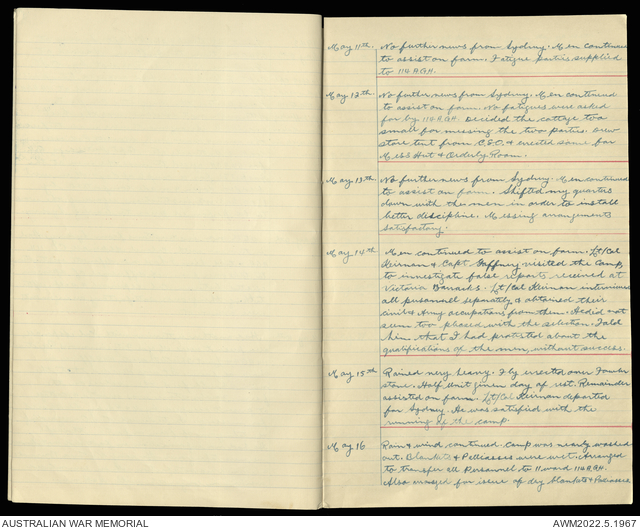 May 11th. No further news from Sydney. Men continued
to assist on farm. Fatigue parties supplied
to 114 AGH.
May 12th. No further news from Sydney. Men continued
to assist on farm. No fatigues were asked
for by 114 AGH. Decided the cottage too
small for messing the two parties. Drew
store tent from C.E.O. & erected same for
Mess Hut & Orderly Room.
May 13th. No further news from Sydney. Men continued
to assist on farm. Shifted my quarters
down with the men in order to install
better discipline. Messing arrangements
satisfactory.
May 14th Men continued to assist on farm. Lt/Col
Keirnan & Capt Gaffney visited the Camp
to investigate false reports received at
Victoria Barracks. Lt/Col Keirnan interviewed
all personnel separately & obtained their
civil & Army occupations from them. He did not
seem too pleased with the selection. Told
him that I had protested about the
qualifications of the men, without success.
May 15th Rained very heavy. Fly erected over
store. Half Unit given day of rest. Remainder
assisted on farm. Lt/Col Keirnan departed
for Sydney. He was satisfied with the
running of the camp
May 16 Rain & wind continued. Camp was nearly washed
out. Blankets & Palliasses were wet. Arranged
to transfer all Personnel to 11 ward 114 AGH.
Also arranged for issue of dry blankets & Palliasses
AUSTRALIAN WAR MEMORIAL
AWM2022.5.1967